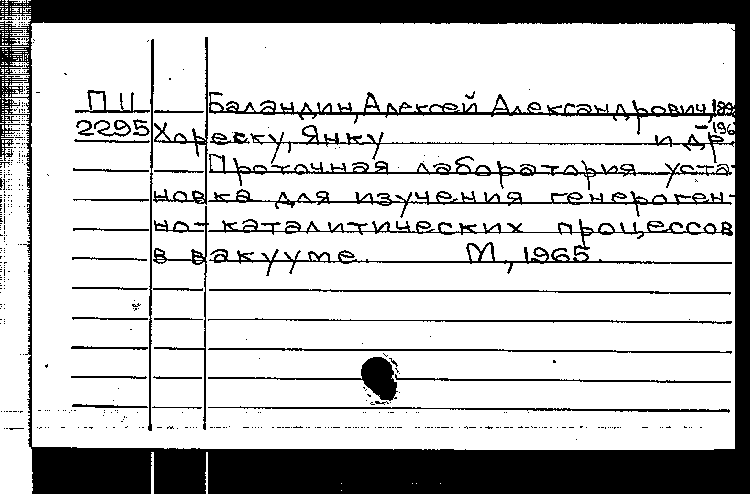 П II Баландин, Алексей Александрович, 189
2295 Хореску, Янку и др. 196
Проточная лаборатория уста-
новка для изучения генероген-
но-каталитических процессов
в вакууме. М., 1965.